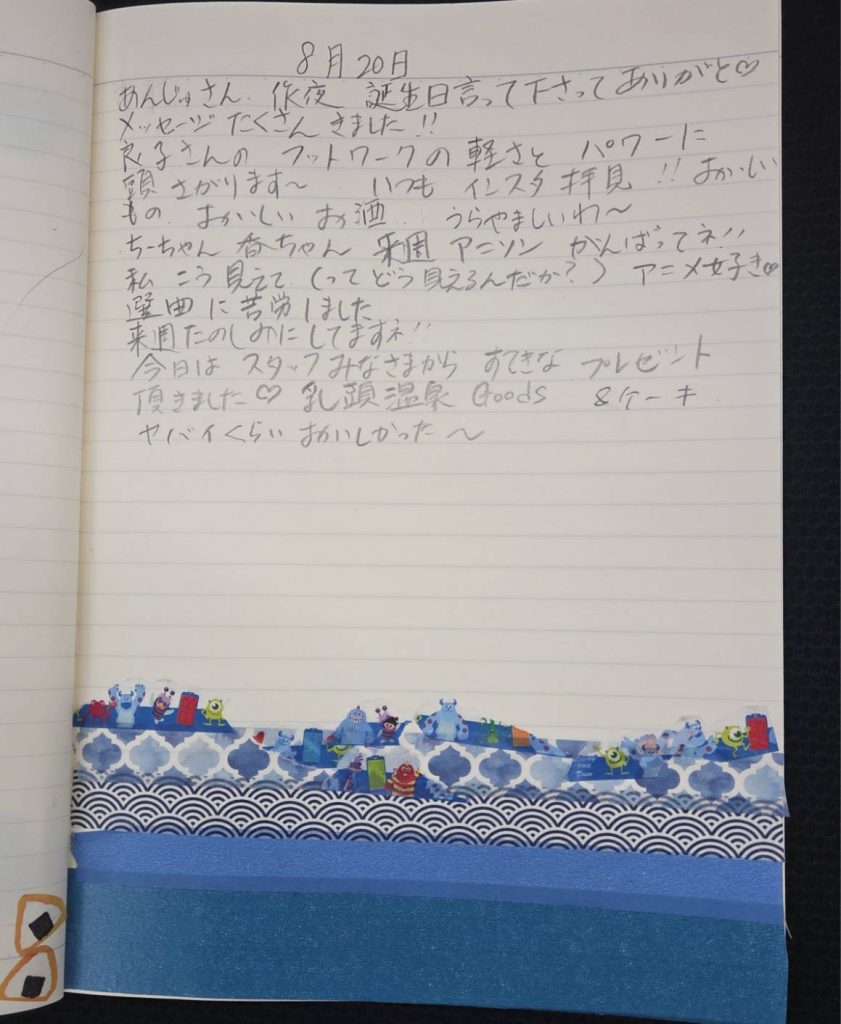 8月20日
あんじゅさん 昨夜 誕生日言って下さって ありがと♡
メッセージ たくさん きました!!
良子さんの フットワークの 軽さと パワーに
頭 さがります〜 いつも インスタ 拝見!! おいしい
もの おいしい お酒 うらやましいわ〜
ちーちゃん 香ちゃん 来週 アニソン がんばってネ!!
私 こう見えて (って どう見えるんだか?) アニメ好き♡
選曲に苦労しました
来週たのしみにしてますネ!!
今日は スタッフみなさまから すてきな プレゼント
頂きました♡ 乳頭温泉 Goods &ケーキ
ヤバイくらい おいしかった〜